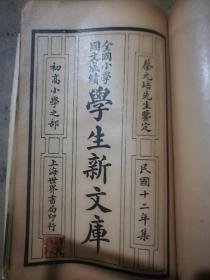 蔡元培先生鑒定
民國十二年集
全國小學
國文成績
學生新文庫
初高小學之部
上海世界書局印行